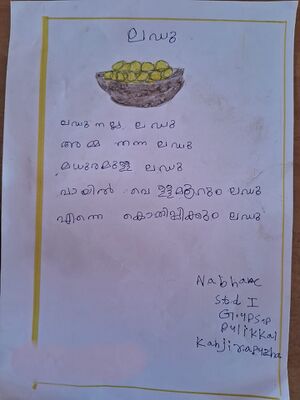 ലഡു
ലഡു നല്ല ലഡു
അമ്മ തന്ന ലഡു
മധുരമുള്ള ലഡു
വായിൽ വെള്ളമൂറും ലഡു
എന്നെ കൊതിപ്പിക്കും ലഡു
Nabhan
Std I
GLPS
Pulikkal
Kanjirapuzha